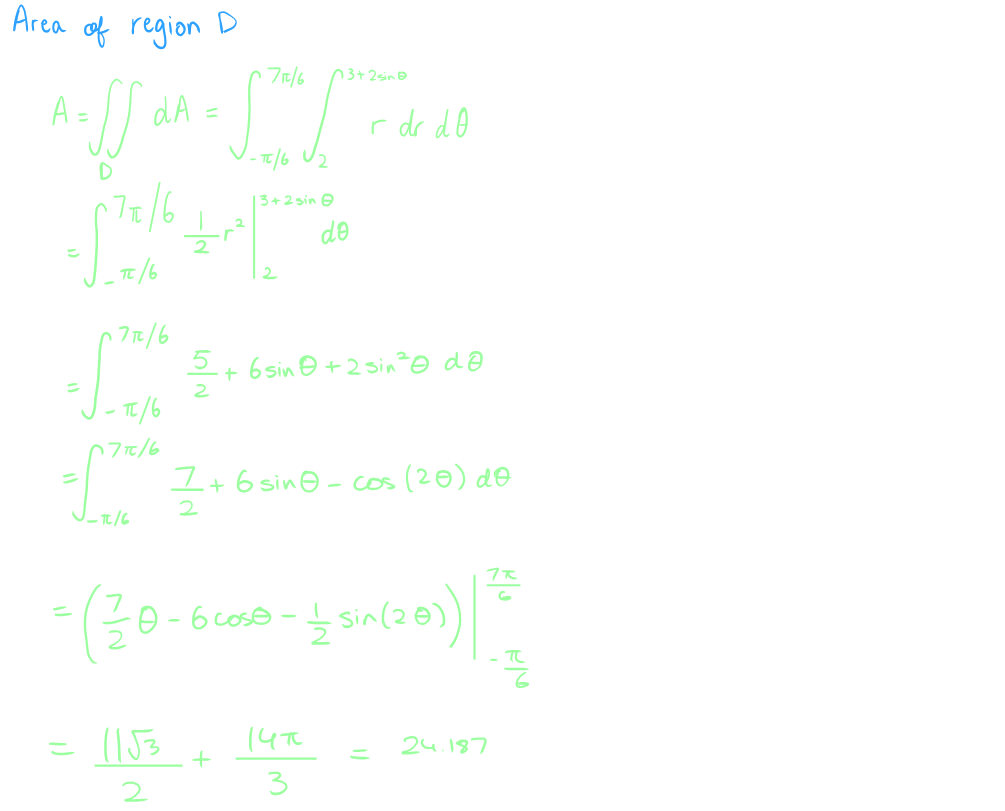 Area of region D
A = ∬_D dA = ∫_{-π/6}^{7π/6} ∫_2^{3+2sinθ} r dr dθ
= ∫_{-π/6}^{7π/6} 1/2 r² |_2^{3+2sinθ} dθ
= ∫_{-π/6}^{7π/6} 5/2 + 6sinθ + 2sin²θ dθ
= ∫_{-π/6}^{7π/6} 7/2 + 6sinθ - cos(2θ) dθ
= (7/2 θ - 6cosθ - 1/2 sin(2θ)) |_{-π/6}^{7π/6}
= 11√3/2 + 14π/3 = 24.187